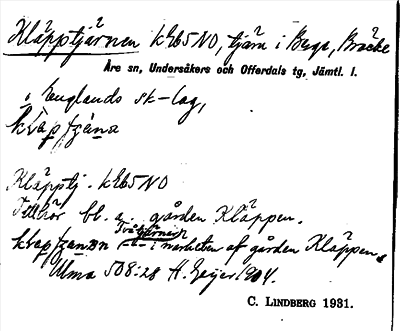 Kläpptjärnen k265NO, tjärn i Berge, Bräcke
Åre sn, Undersåkers och Offerdals tg, Jämtl. l.
i Englands sk-lag,
Kläpptj. k265NO
Tillhör bl. a. gården Kläppen.
Två tjärnar
i närheten af gården Kläppen.
Ulma 508:28 H. Geijer 1904.
C. LINDBERG 1931.